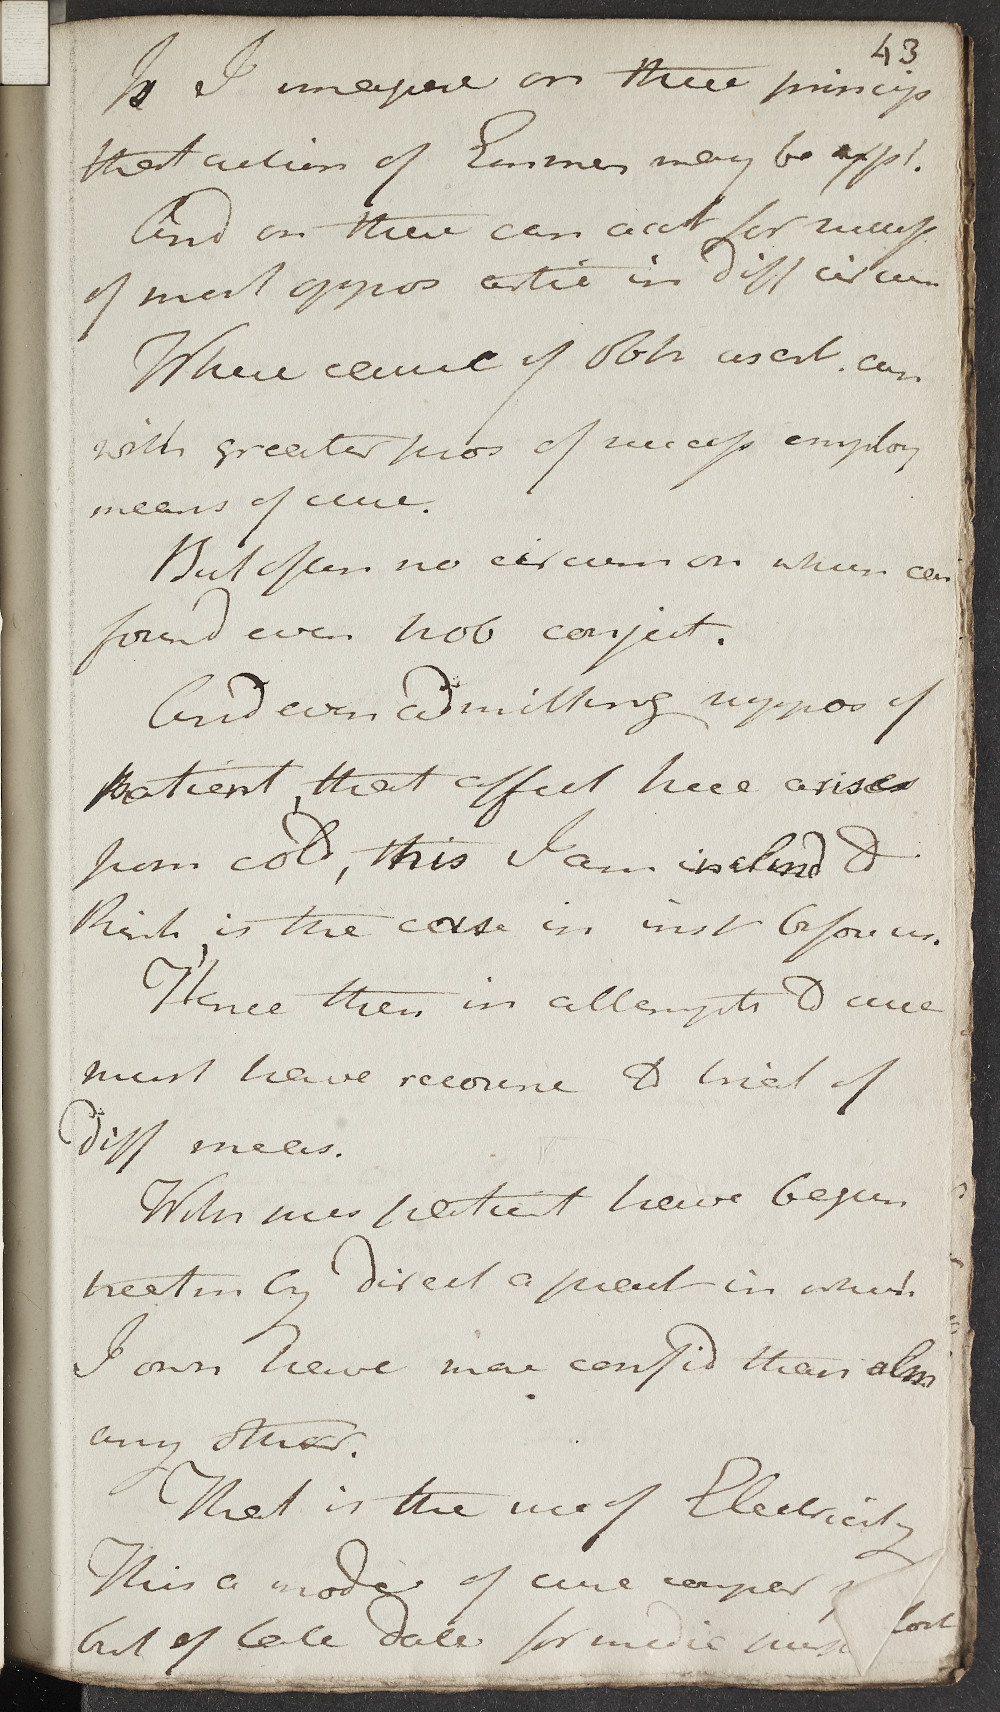 43
It I imagine on these princip
that action of Emmen may be expl.
And on these can acct for success
of most oppos artic in diff circum
Where cause of Obstr ascert. can
with greater pros of success employ
means of cure.
But often no circum on which can
found even prob conject.
And even admitting suppos of
Patient, that affect here arises
from cold, this I am inclind to
think, is the case in inst before us.
Hence then in attempts to cure
must have recourse to trial of
diff meas.
With this patient have begun
treatm by direct a pract in which
I own have more confid than alm
any other.
That is the use of Electricity
This a mode of cure comper
but of late date for medic purp